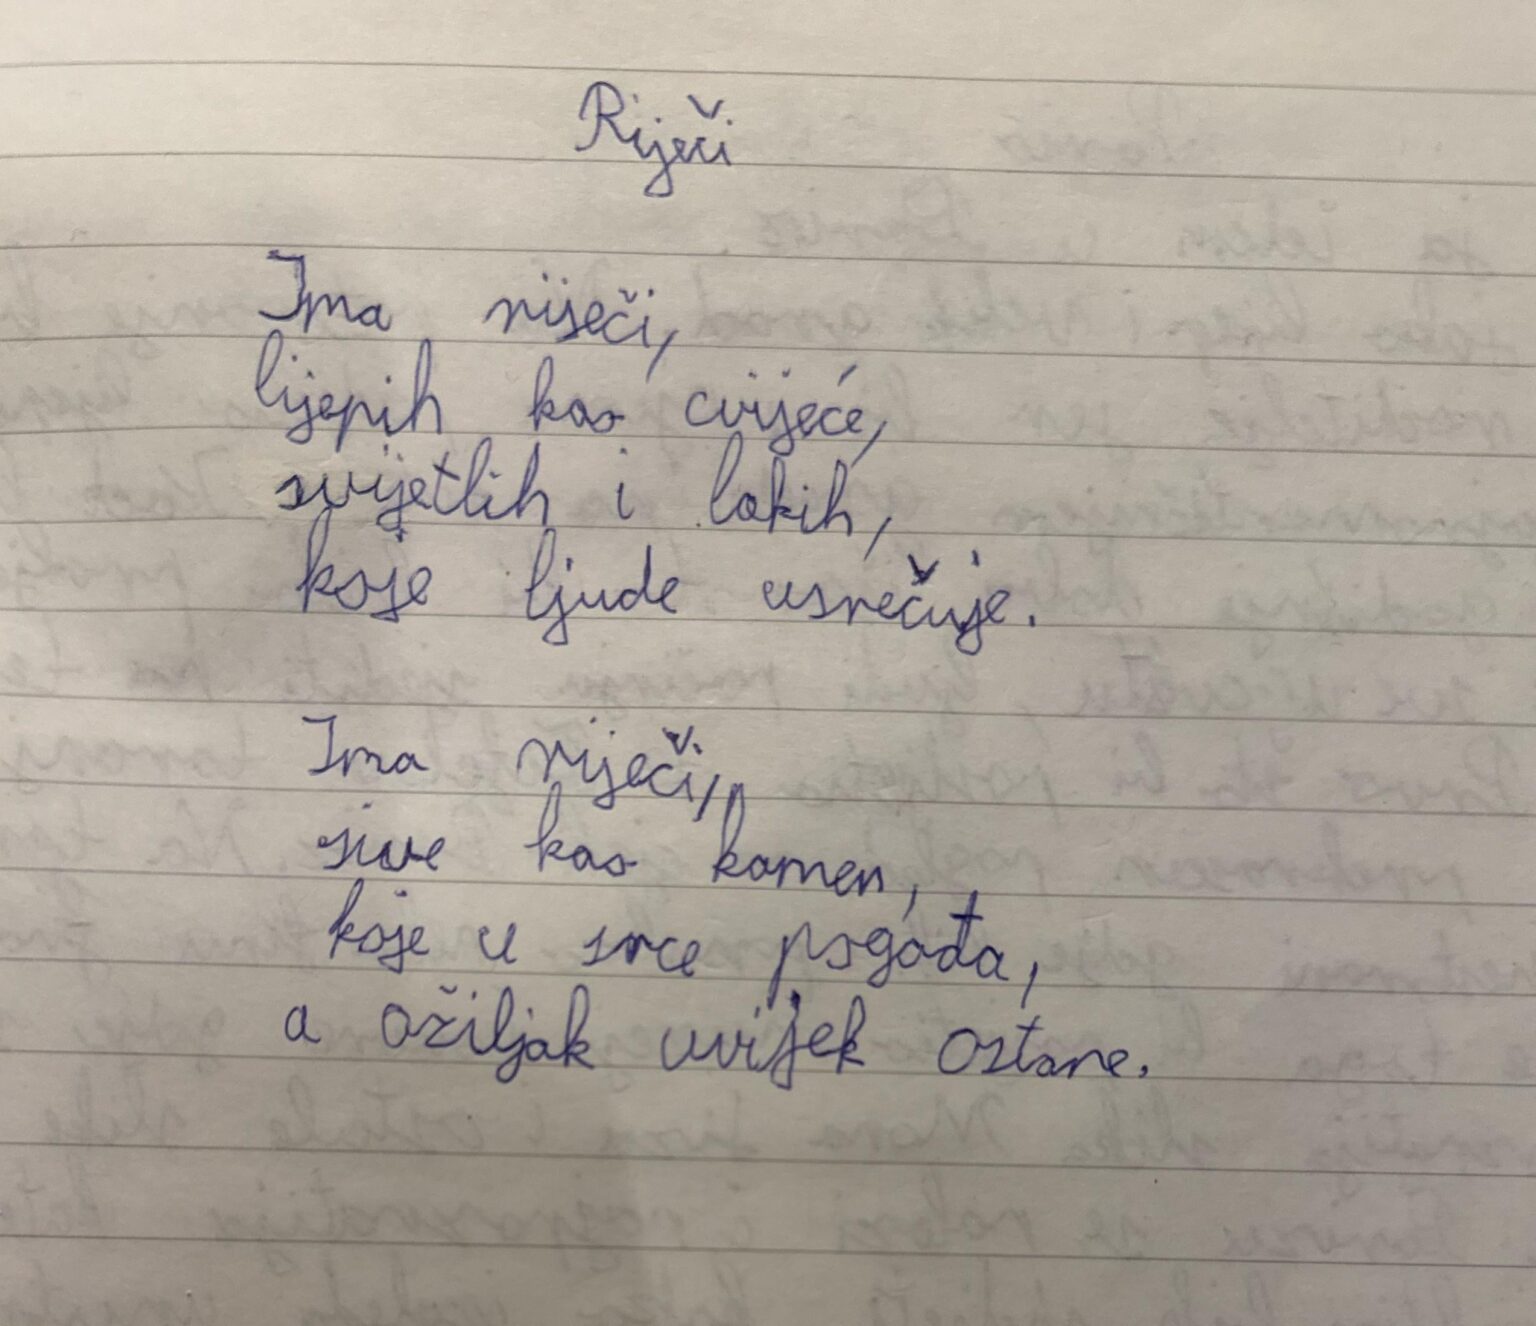 Riječi
Ima riječi,
lijepih kao cvijeće,
svijetlih i lakih,
koje ljude usrečuje.
Ima riječi,
sive kao kamen,
koje u srce pogađa,
a ožiljak uvijek ostane.